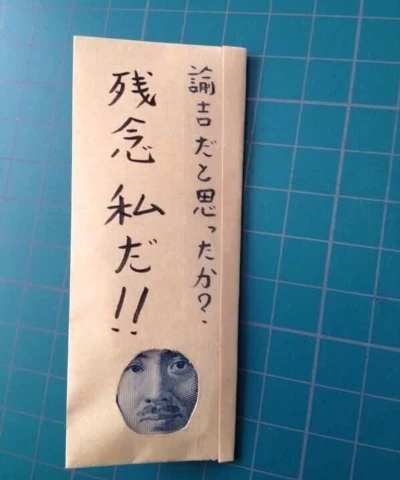 諭吉だと思ったか?
残念 私だ!!